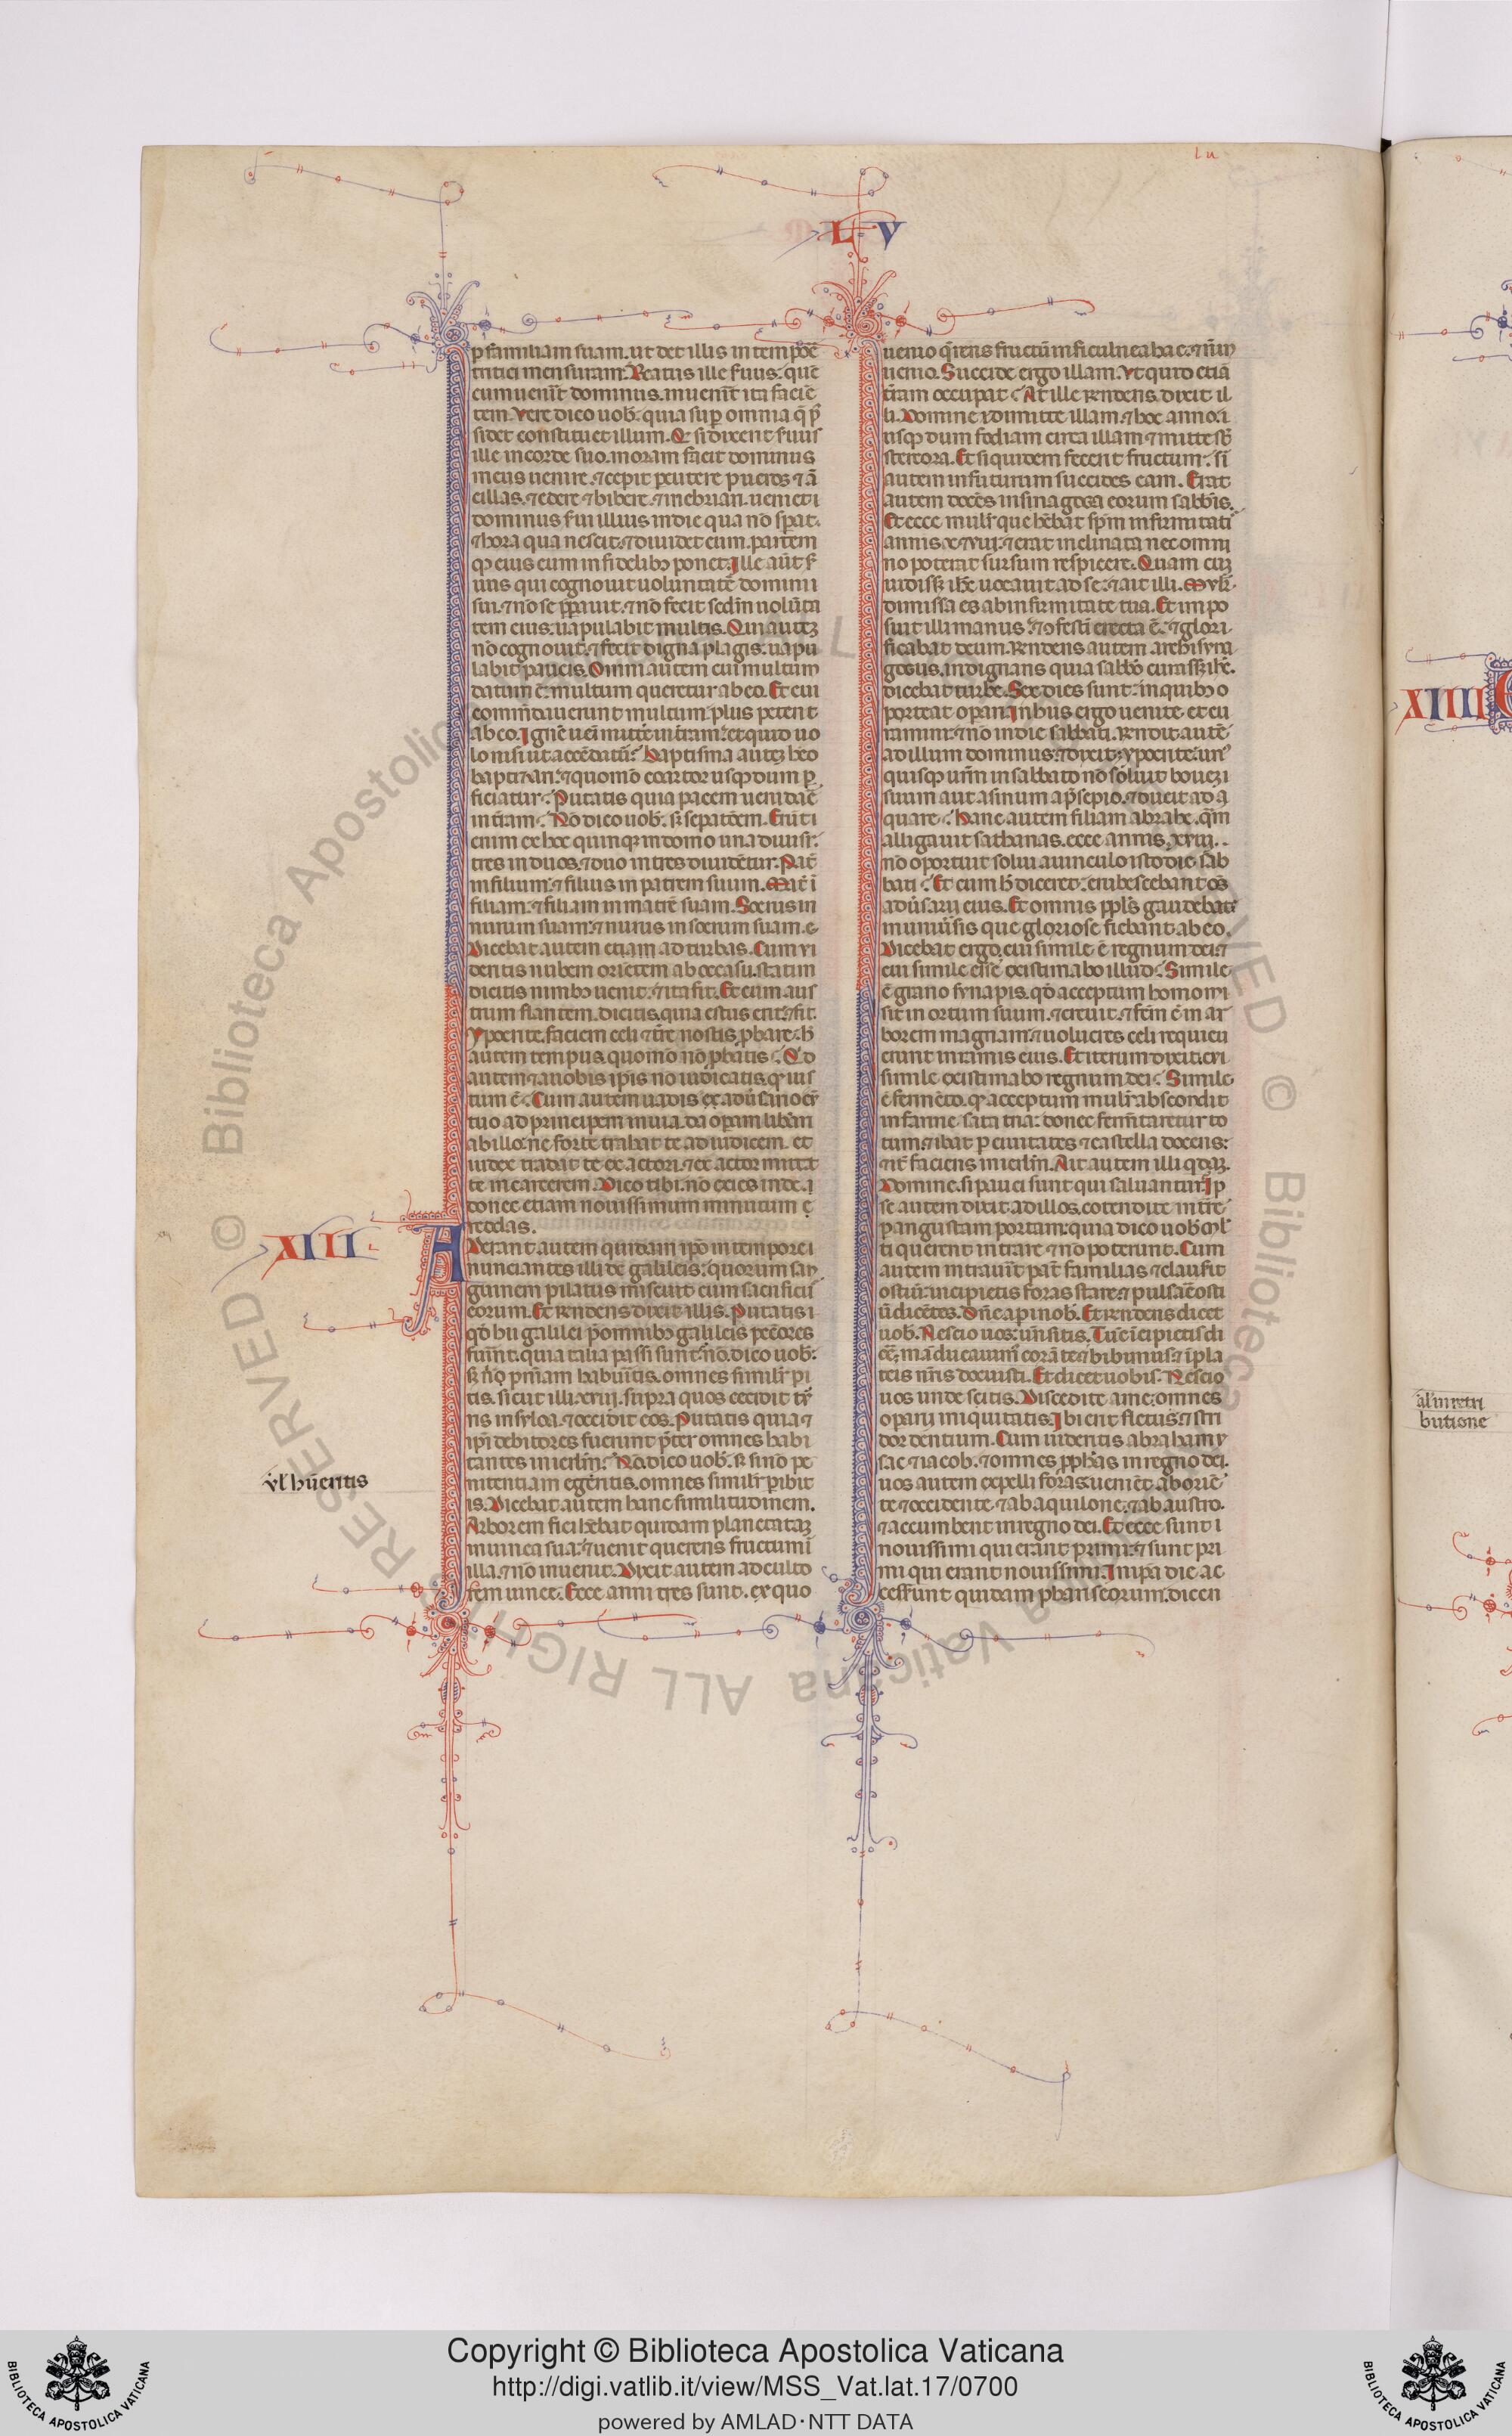 Lu
L V
p̱ familiam suam. ut det illis in temp̱oꝛe
tritici mensuram. Beatus ille ẜuus. quē
cum uen̄it dominus. inuen̄it ita faciē
tem. Vere dico uob̄. quia sup̱ omnia q̄ p̱
sidet constituet illum. Q si dixerit ẜuus
ille in corde suo. moram facit dominus
meus uenire. ⁊ cep̱it p̱cutere pueros ⁊ ā
cillas. ⁊ edere ⁊ bibere. ⁊ inebriari. ueniet
dominus ẜui illius in die qua nō sp̱at.
⁊ hora qua nescit. ⁊ diuidet eum. partem
q̱ eius cum infidelibꝫ ponet. Ille aūt ẜ
uus qui cognouit uoluntatē domini
sui. ⁊ nō se p̱parauit. ⁊ nō fecit scd̄m uolūta
tem eius. uapulabit multis. Qui autꝫ
nō cognouit. ⁊ fecit digna plagis. uapu
labit paucis. Omni autem cui multum
datum ē. multum queretur ab eo. Et cui
com̄dauerunt multum. plus petent
ab eo. Ignē ueni mittē in t̄ram. et quid uo
lo nisi ut accēdatur. Baptisma autꝫ h̄eo
baptiꝫari. ⁊ quomō coartor usq̱ dum p̱
ficiatur. Putatis quia pacem ueni daē
in t̄ram. Nō dico uob̄. ẜ sepatōem. Erūt
enim ex hoc quinqꝫ in domo una diuisi.
tres in duos. ⁊ duo in tres diuidētur. Pat̄
in filium. ⁊ filius in patrem suum. Mat̄ ī
filiam. ⁊ filiam in matrē suam. Socrus in
nurum suam. ⁊ nurus in socrum suam.
Dicebat autem etiam ad turbas. Cum ui
dentis nubem oriētem ab occasu. statim
dicitis nimbꝫ uenit. ⁊ ita fit. Et cum aus
trum flantem. dicitis. quia estus erit. ⁊ fit.
Ypocrite. faciem celi ⁊ t̄re nostis p̱bare. h̄
autem tempus. quomō nō p̱batis. Qd
autem ⁊ a uobis ip̄is nō iudicatis. q̱ ius
tum ē. Cum autem uadis cū adūsario
tuo ad principem in uia. da op̱am lib̄ari
ab illo. ne forte trahat te ad iudicem. et
iudex tradat te exactori. ⁊ exactor mittat
te in carcerem. Dico tibi. nō exies inde.
donec etiam nouissimum minutum
reddas.
XIII
Aderant autem quidam ip̱o in tempore
nunciantes illi de galileis. quorum san
guinem pilatus miscuit cum sacrificiis
eorum. Et rn̄dens dixit illis. Putatis
qd̄ hii galilei p̱ omnibꝫ galileis pccōres
fuer̄nt. quia talia passi sunt. nō. dico uob̄.
ẜ ni p̄niam habuitis. omnes simili pi
tis. sicut illi. xviii. supra quos cecidit tur
ris in syloa. ⁊ occidit eos. Putatis quia ⁊
ip̄i debitores fuerunt p̱ter omnes habi
tantes in ierl̄m. Nō dico uob̄. ẜ si nō pe
vl̓ hūentis
nitentiam egēntis. omnes simili p̱ibit
is. Dicebat autem hanc similitudinem.
Arborem fici h̄ebat quidam plantatam
in uinea sua. ⁊ uenit querens fructum ī
illa. ⁊ nō inuenit. Dixit autem ad culto
rem uinee. Ecce anni tres sunt. ex quo
uenio q̄rens fructum in ficulnea hac. ⁊ nō in
uenio. Succide ergo illam. Vt quid etiā
t̄ram occupat. At ille rn̄dens dixit il
li. Domine dimitte illam. ⁊ hoc anno.
usq̱ dum fodiam circa illam ⁊ mittā
stercora. Et siquidem fecerit fructum. si
autem in futurum succides eam. Erat
autem docēs in sinagoga eorum sabb̄is.
Et ecce muli que h̄ebat sp̄m infirmitatis
annis. x ⁊ viii. ⁊ erat inclinata nec omni
no poterat sursum respicere. Quam cum
uidissꝫ ih̄c uocauit ad se. ⁊ ait illi. Muli.
dimissa es ab infirmitate tua. Et impo
suit illi manus. ⁊ ꝯfestī erecta ē. ⁊ glori
ficabat deum. Rn̄dens autem archisyna
gogus. indignans quia sabbō curassꝫ ih̄c.
dicebat turbe. Sex dies sunt. in quibꝫ o
porteat operari. In hiis ergo uenite. et cu
ramini. ⁊ nō in die sabbati. Rn̄dit autē
ad illum dominus. ⁊ dixit. ypocrite. un᷒
quisq̱ ur̄m in sabbato nō soluit bouem
suum aut asinum a p̱sepio. ⁊ ducit ad a
quare. Hanc autem filiam abrahe. qām
alligauit sathanas. ecce annis. xviii.
nō oportuit solui a uinculo isto die sab
bati. Et cum h̄ diceret. erubescebant oēs
adūsarii eius. Et omnis pp̄ls gaudebat
in uniuersis que gloriose fiebant ab eo.
Dicebat ergo. cui simile ē regnum dei. ⁊
cui simile esse existimabo illud. Simile
ē grano synapis. qd̄ acceptum homo mi
sit in ortum suum. ⁊ creuit. ⁊ fc̄m ē in ar
borem magnam. ⁊ uolucres celi requieu
erunt in ramis eius. Et iterum dixit. cui
simile existimabo regnum dei. Simile
ē fermēto. q̱ acceptum muli abscondit
in farine sata tria. donec fermtaretur to
tum. ⁊ ibat p̱ ciuitates ⁊ castella docens.
⁊ it̄ faciens in ierl̄m. Ait autem illi qdaꝫ.
Domine. si pauci sunt qui saluantur. Ip̱
se autem dixit ad illos. cōtendite intrare
p̱ angustam portam. quia dico uob̄. ml
ti querent intrare ⁊ nō poterunt. Cum
autem intrauīt pat̄ familias ⁊ clauserit
ostiū. incipietis foras stare. ⁊ pulsare osti
ū dicētes. Dn̄e aperi nob̄. Et rn̄dens dicet
uob̄. Nescio uos. un̄ sitis. Tunc incipietis di
cē. māducauimꝰ corā te ⁊ bibimus. ⁊ ī pla
teis nr̄is docuisti. Et dicet uobis. Nescio
uos unde sitis. Discedite a me. omnes
operarii iniquitatis. Ibi erit fletus. ⁊ stri
dor dentium. Cum uidentis abraham y
saac ⁊ iacob. ⁊ omnes pp̄has in regno dei.
uos autem expelli foras. uenient ab oriē
te ⁊ occidente ⁊ ab aquilone. ⁊ ab austro.
⁊ accumbent in regno dei. Et ecce sunt
nouissimi qui erant primi. ⁊ sunt pri
mi qui erant nouissimi. In ip̄a die ac
cesserunt quidam phariseorum. dicen
XIIII
al̓ in retri
butione
Copyright © Biblioteca Apostolica Vaticana
http://digi.vatlib.it/view/MSS_Vat.lat.17/0700
powered by AMLAD·NTT DATA
BIBLIOTECA APOSTOLICA VATICANA
BIBLIOTECA APOSTOLICA VATICANA
© Biblioteca Apostolica Vaticana ALL RIGHTS RESERVED